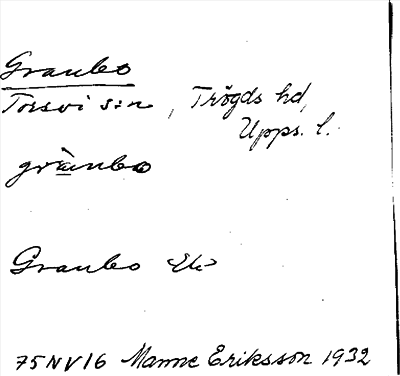 Granbo
Torsvi s:n, Trögds hd,
Upps. l.
grànbo
Granbo Ek
75NV16 Manne Eriksson 1932